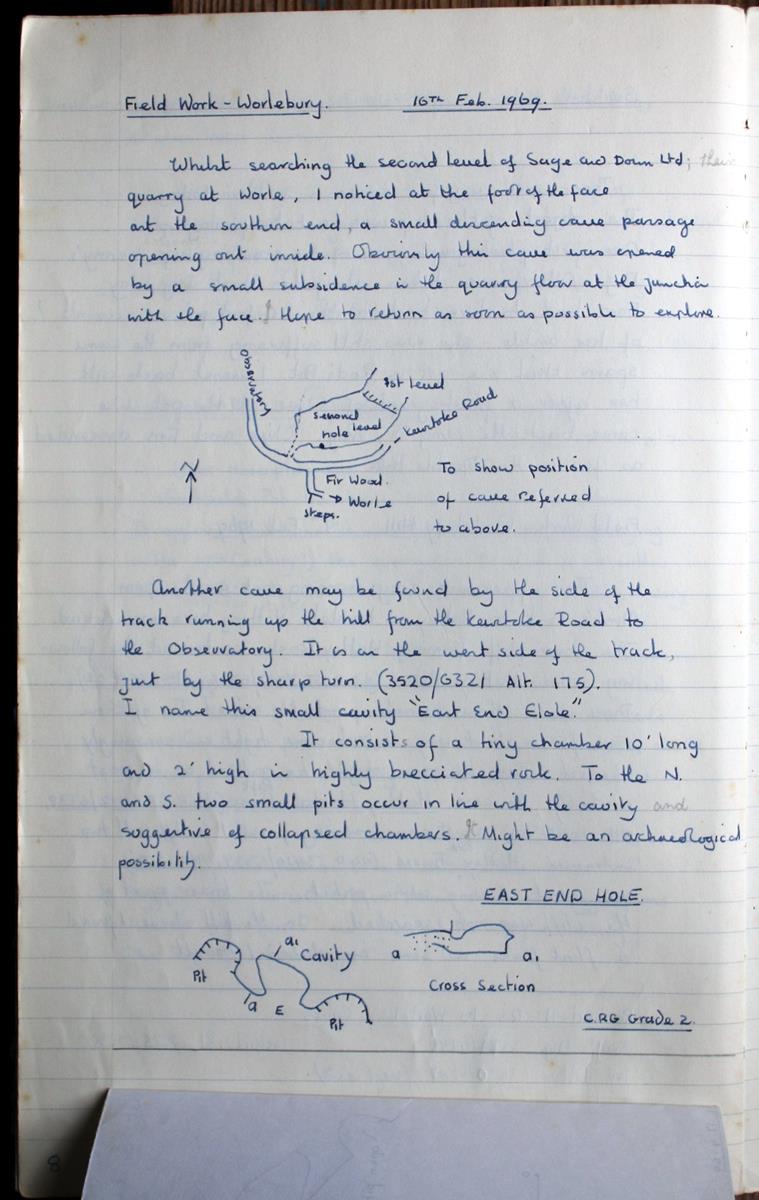 Field Work - Worlebury. 16TH Feb. 1969.
Whilst searching the second level of Sage and Down Ltd; their
quarry at Worle, I noticed at the foot of the face
ant the southern end, a small descending cave passage
opening out inside. Obviously this cave was opened
by a small subsidence in the quarry flow at the junction
with the face. I Hope to return as soon as possible to explore.
Observatory
1st Level
Second level
hole
Kewstoke Road
N
Fir Wood.
→ Worle
Steps.
To show position
of cave referred
to above.
Another cave may be found by the side of the
track running up the hill from the Kewstoke Road to
the Observatory. It is on the west side of the track,
just by the sharp turn. (3520/6321 Alt. 175).
I name this small cavity "East End Elole."
It consists of a tiny chamber 10' long
and 2' high in highly brecciated rock. To the N.
and S. two small pits occur in line with the cavity and
suggestive of collapsed chambers. It Might be an archaeological
possibility.
EAST END HOLE.
Pit
a
a1
Cavity
E
Pit
a a1
Cross Section
C.RG Grade 2.